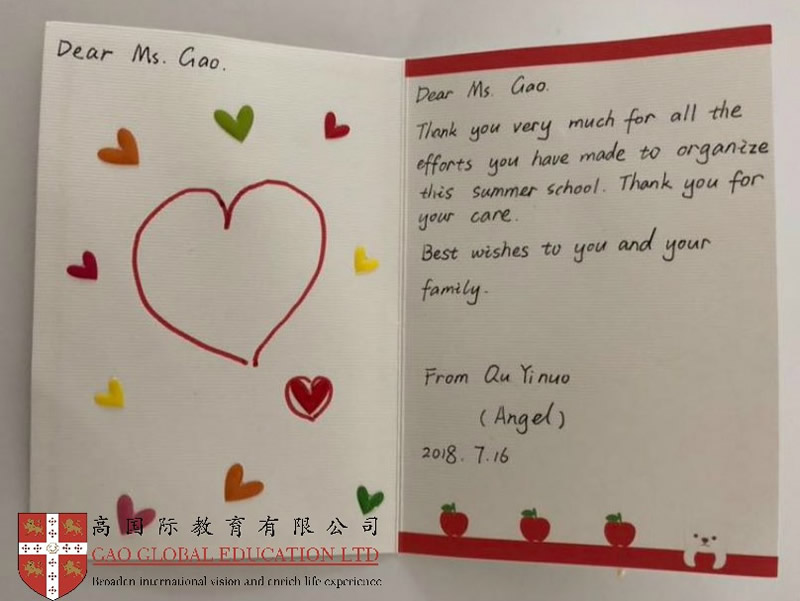 Dear Ms. Gao.
Dear Ms. Gao.
Thank you very much for all the
efforts you have made to organize
this summer school. Thank you for
your care.
Best wishes to you and your
family.
From Qu Yinuo
(Angel)
2018. 7.16
高国际教育有限公司
GAO GLOBAL EDUCATION LTD
Broaden international vision and enrich life experience